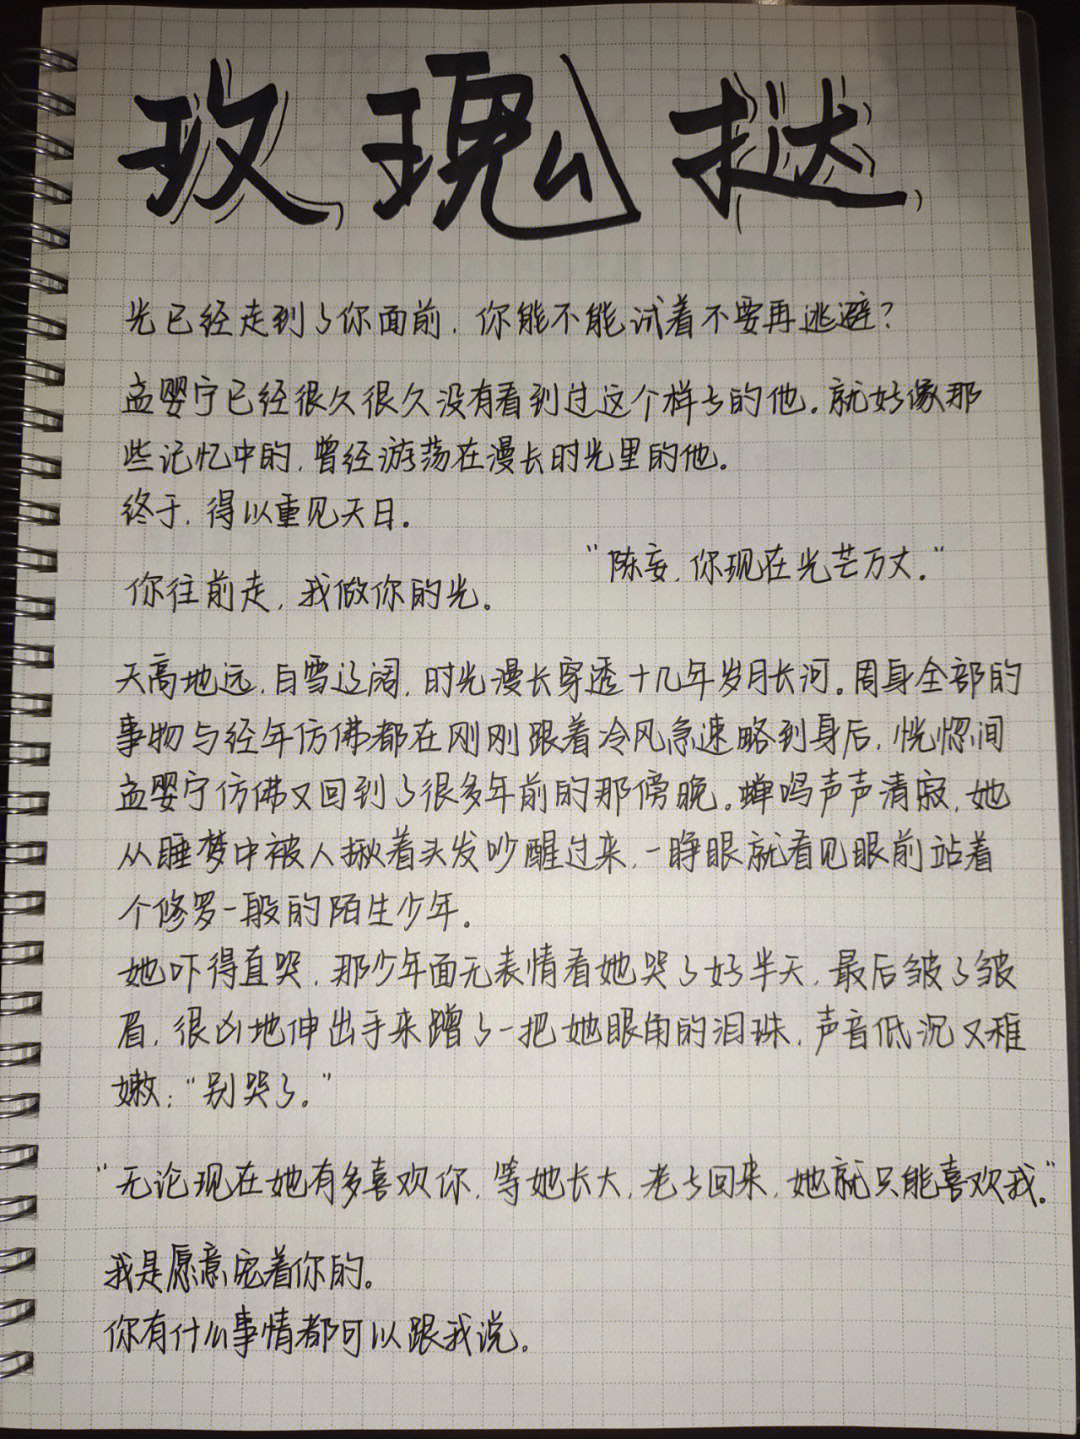 玫瑰挞
光已经走到了你面前，你能不能试着不要再逃避？
孟婴宁已经很久很久没有看到过这个样子的他。就好像那
些记忆中的，曾经游荡在漫长时光里的他。
终于，得以重见天日。
“陈妄，你现在光芒万丈。”
你往前走，我做你的光。
天高地远，白雪辽阔，时光漫长穿透十几年岁月长河。周身全部的
事物与经年仿佛都在刚刚跟着冷风急速略到身后，恍惚间
孟婴宁仿佛又回到了很多年前的那傍晚。蝉鸣声声清寂，她
从睡梦中被人揪着头发吵醒过来，一睁眼就看见眼前站着
个修罗一般的陌生少年。
她吓得直哭，那少年面无表情看她哭了好半天，最后皱了皱
眉，很凶地伸出手来蹭了一把她眼角的泪珠，声音低沉又稚
嫩：“别哭了。”
“无论现在她有多喜欢你，等她长大，老子回来，她就只能喜欢我。”
我是愿意宠着你的。
你有什么事情都可以跟我说。